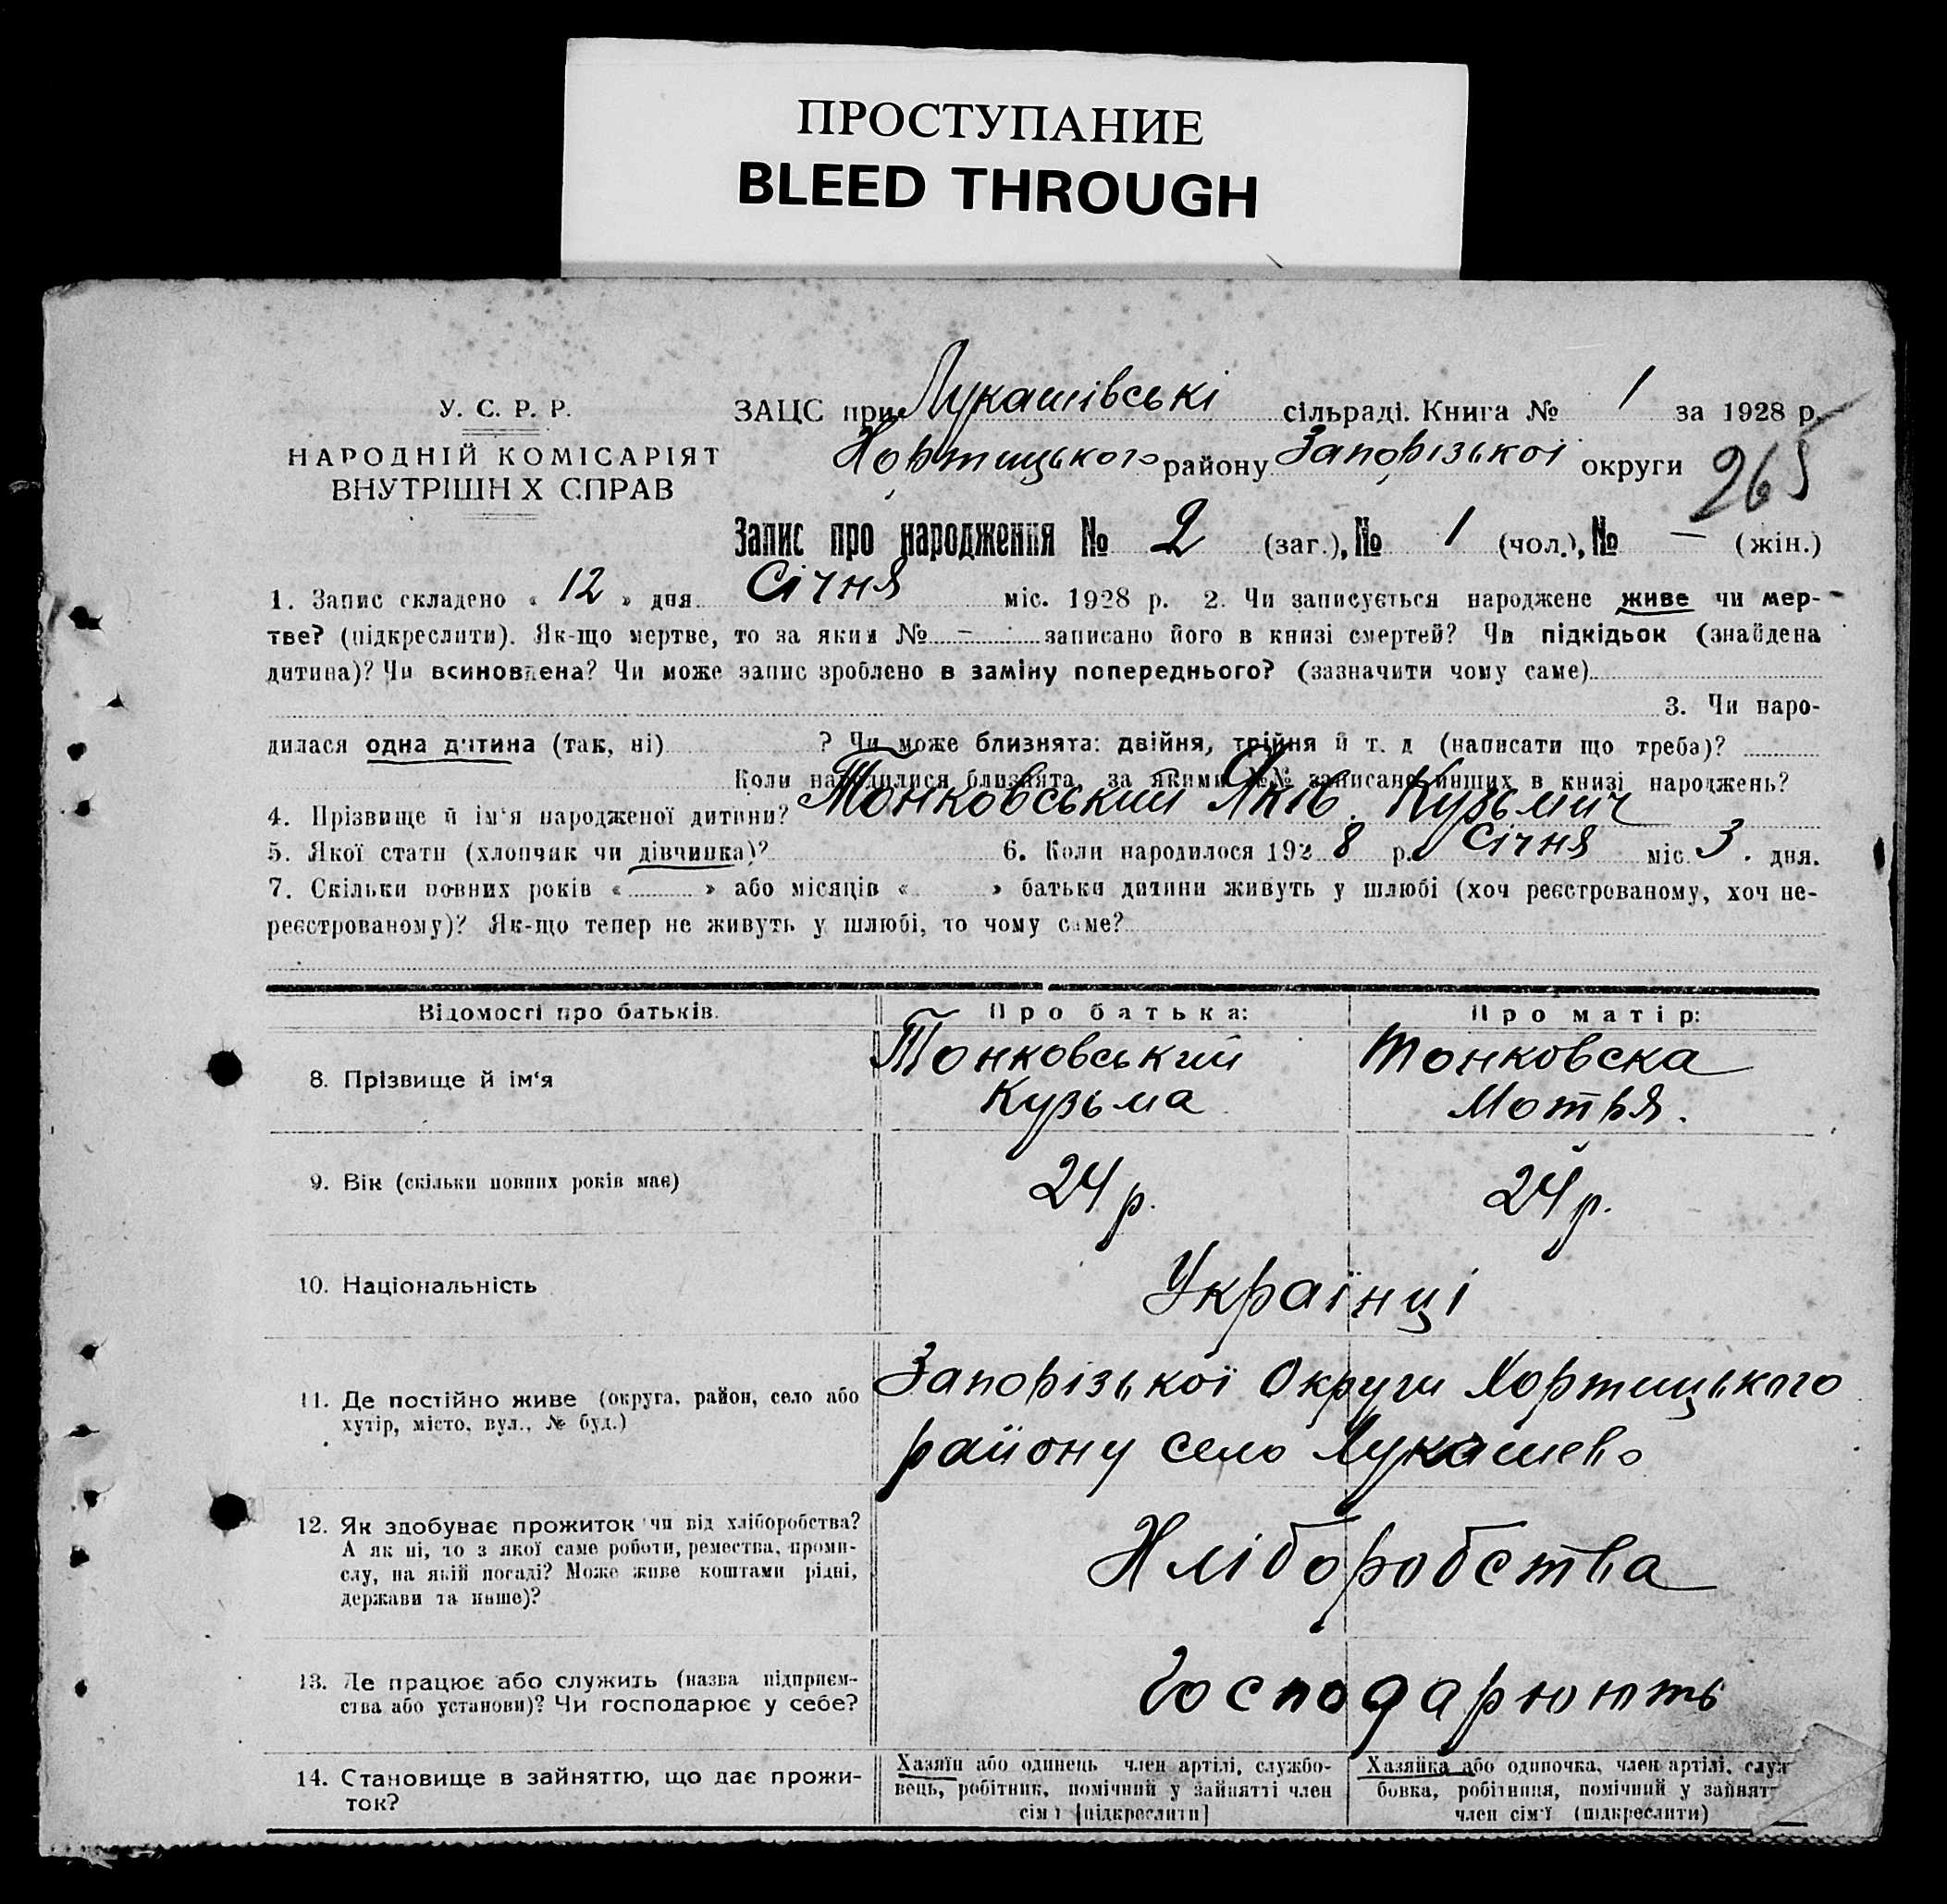 ПРОСТУПАНИЕ
BLEED THROUGH
У. С. Р. Р.
НАРОДНІЙ КОМІСАРІЯТ
ВНУТРІШН Х СПРАВ
ЗАЦС при Лукашівські сільраді. Книга № 1 за 1928 р.
Хортицького району Запорізької округи
265
Запис про народження № 2 (заг.), № 1 (чол.), № — (жін.)
1. Запис складено « 12 » дня Січня міс. 1928 р. 2. Чи записується народжене живе чи мер-
тве? (підкреслити). Як-що мертве, то за яким № - записано його в книзі смертей? Чи підкідьок (знайдена
дитина)? Чи всиновлена? Чи може запис зроблено в заміну попереднього? (зазначити чому саме)
3. Чи наро-
дилася одна дитина (так, ні) ? Чи може близнята: двійня, трійня й т. д (написати що треба)?
Коли народилися близнята, за якими №№ записано инших в книзі народжень?
4. Прізвище й ім'я народженої дитини? Тонковський Яків. Кузьмич
5. Якої стати (хлопчик чи дівчинка)? 6. Коли народилося 1928 р. Січня міс. 3. дня.
7. Скільки повних років « » або місяців « » батьки дитини живуть у шлюбі (хоч реєстрованому, хоч не-
реєстрованому)? Як-що тепер не живуть у шлюбі, то чому саме?
Відомості про батьків. Про батька: Про матір:
8. Прізвище й ім'я Тонковський Кузьма Тонковска Мотря.
9. Вік (скільки повних років має) 24 р. 24 р.
10. Національність Українці
11. Де постійно живе (округа, район, село або
хутір, місто, вул., № буд.)
Запорізької Округи Хортицького
району село Лукашево
12. Як здобуває прожиток чи від хліборобства?
А як ні, то з якої саме роботи, ремества, проми-
слу, на якій посаді? Може живе коштами рідні,
держави та инше)?
Хліборобства
13. Де працює або служить (назва підприєм-
ства або установи)? Чи господарює у себе?
Господарюють
14. Становище в зайняттю, що дає прожи-
ток?
Хазяїн або одинець член артілі, службо-
вець, робітник, помічний у зайнятті член
сім ї [підкреслити]
Хазяйка або одиночка, член артілі, служ
бовка, робітниця, помічний у зайнят
член сім'ї (підкреслити)